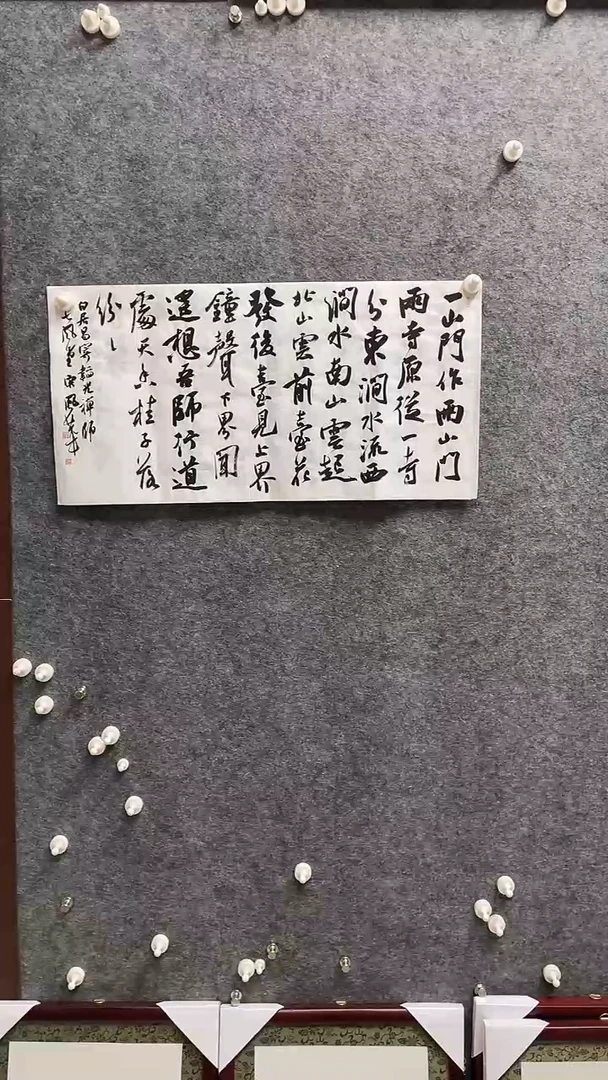 一山門作兩山門
兩寺原從一寺
分東澗水流西
澗水南山雲起
北山雲前臺花
發後臺見上界
鐘聲下界聞
遙想吾師行道
處天香桂子落
紛々
白居易寄韜光禪師